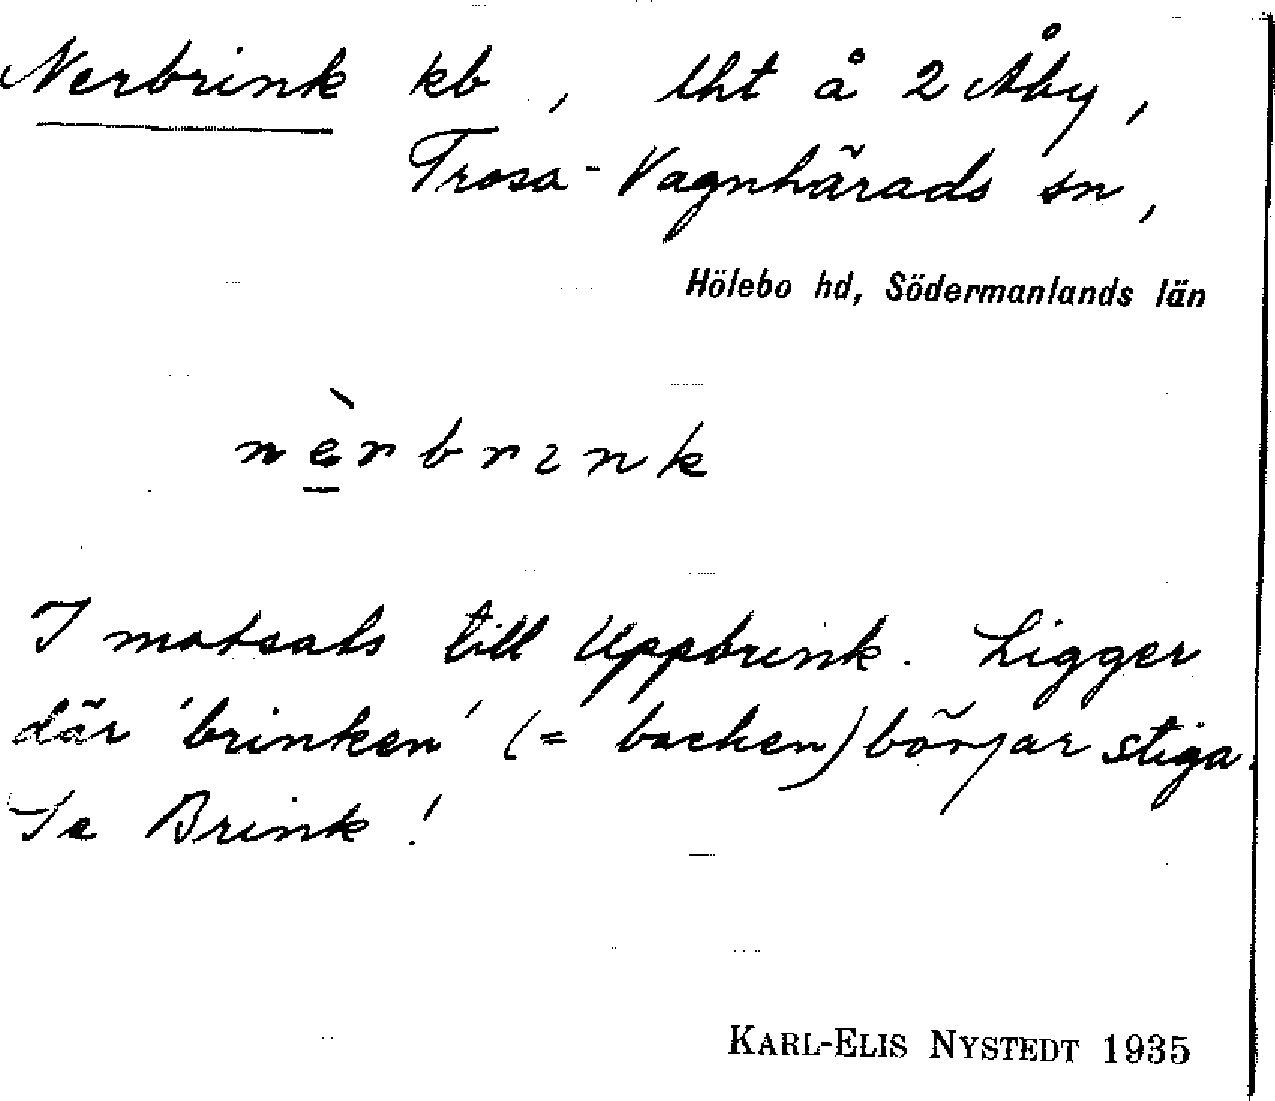 Nerbrink kb, lht å 2 Åby,
Trosa-Vagnhärads sn,
Hölebo hd, Södermanlands län
nèrbrink
I motsats till Uppbrink. Ligger
där 'brinken' (= backen) börjar stiga.
Se Brink!
KARL-ELIS NYSTEDT 1935